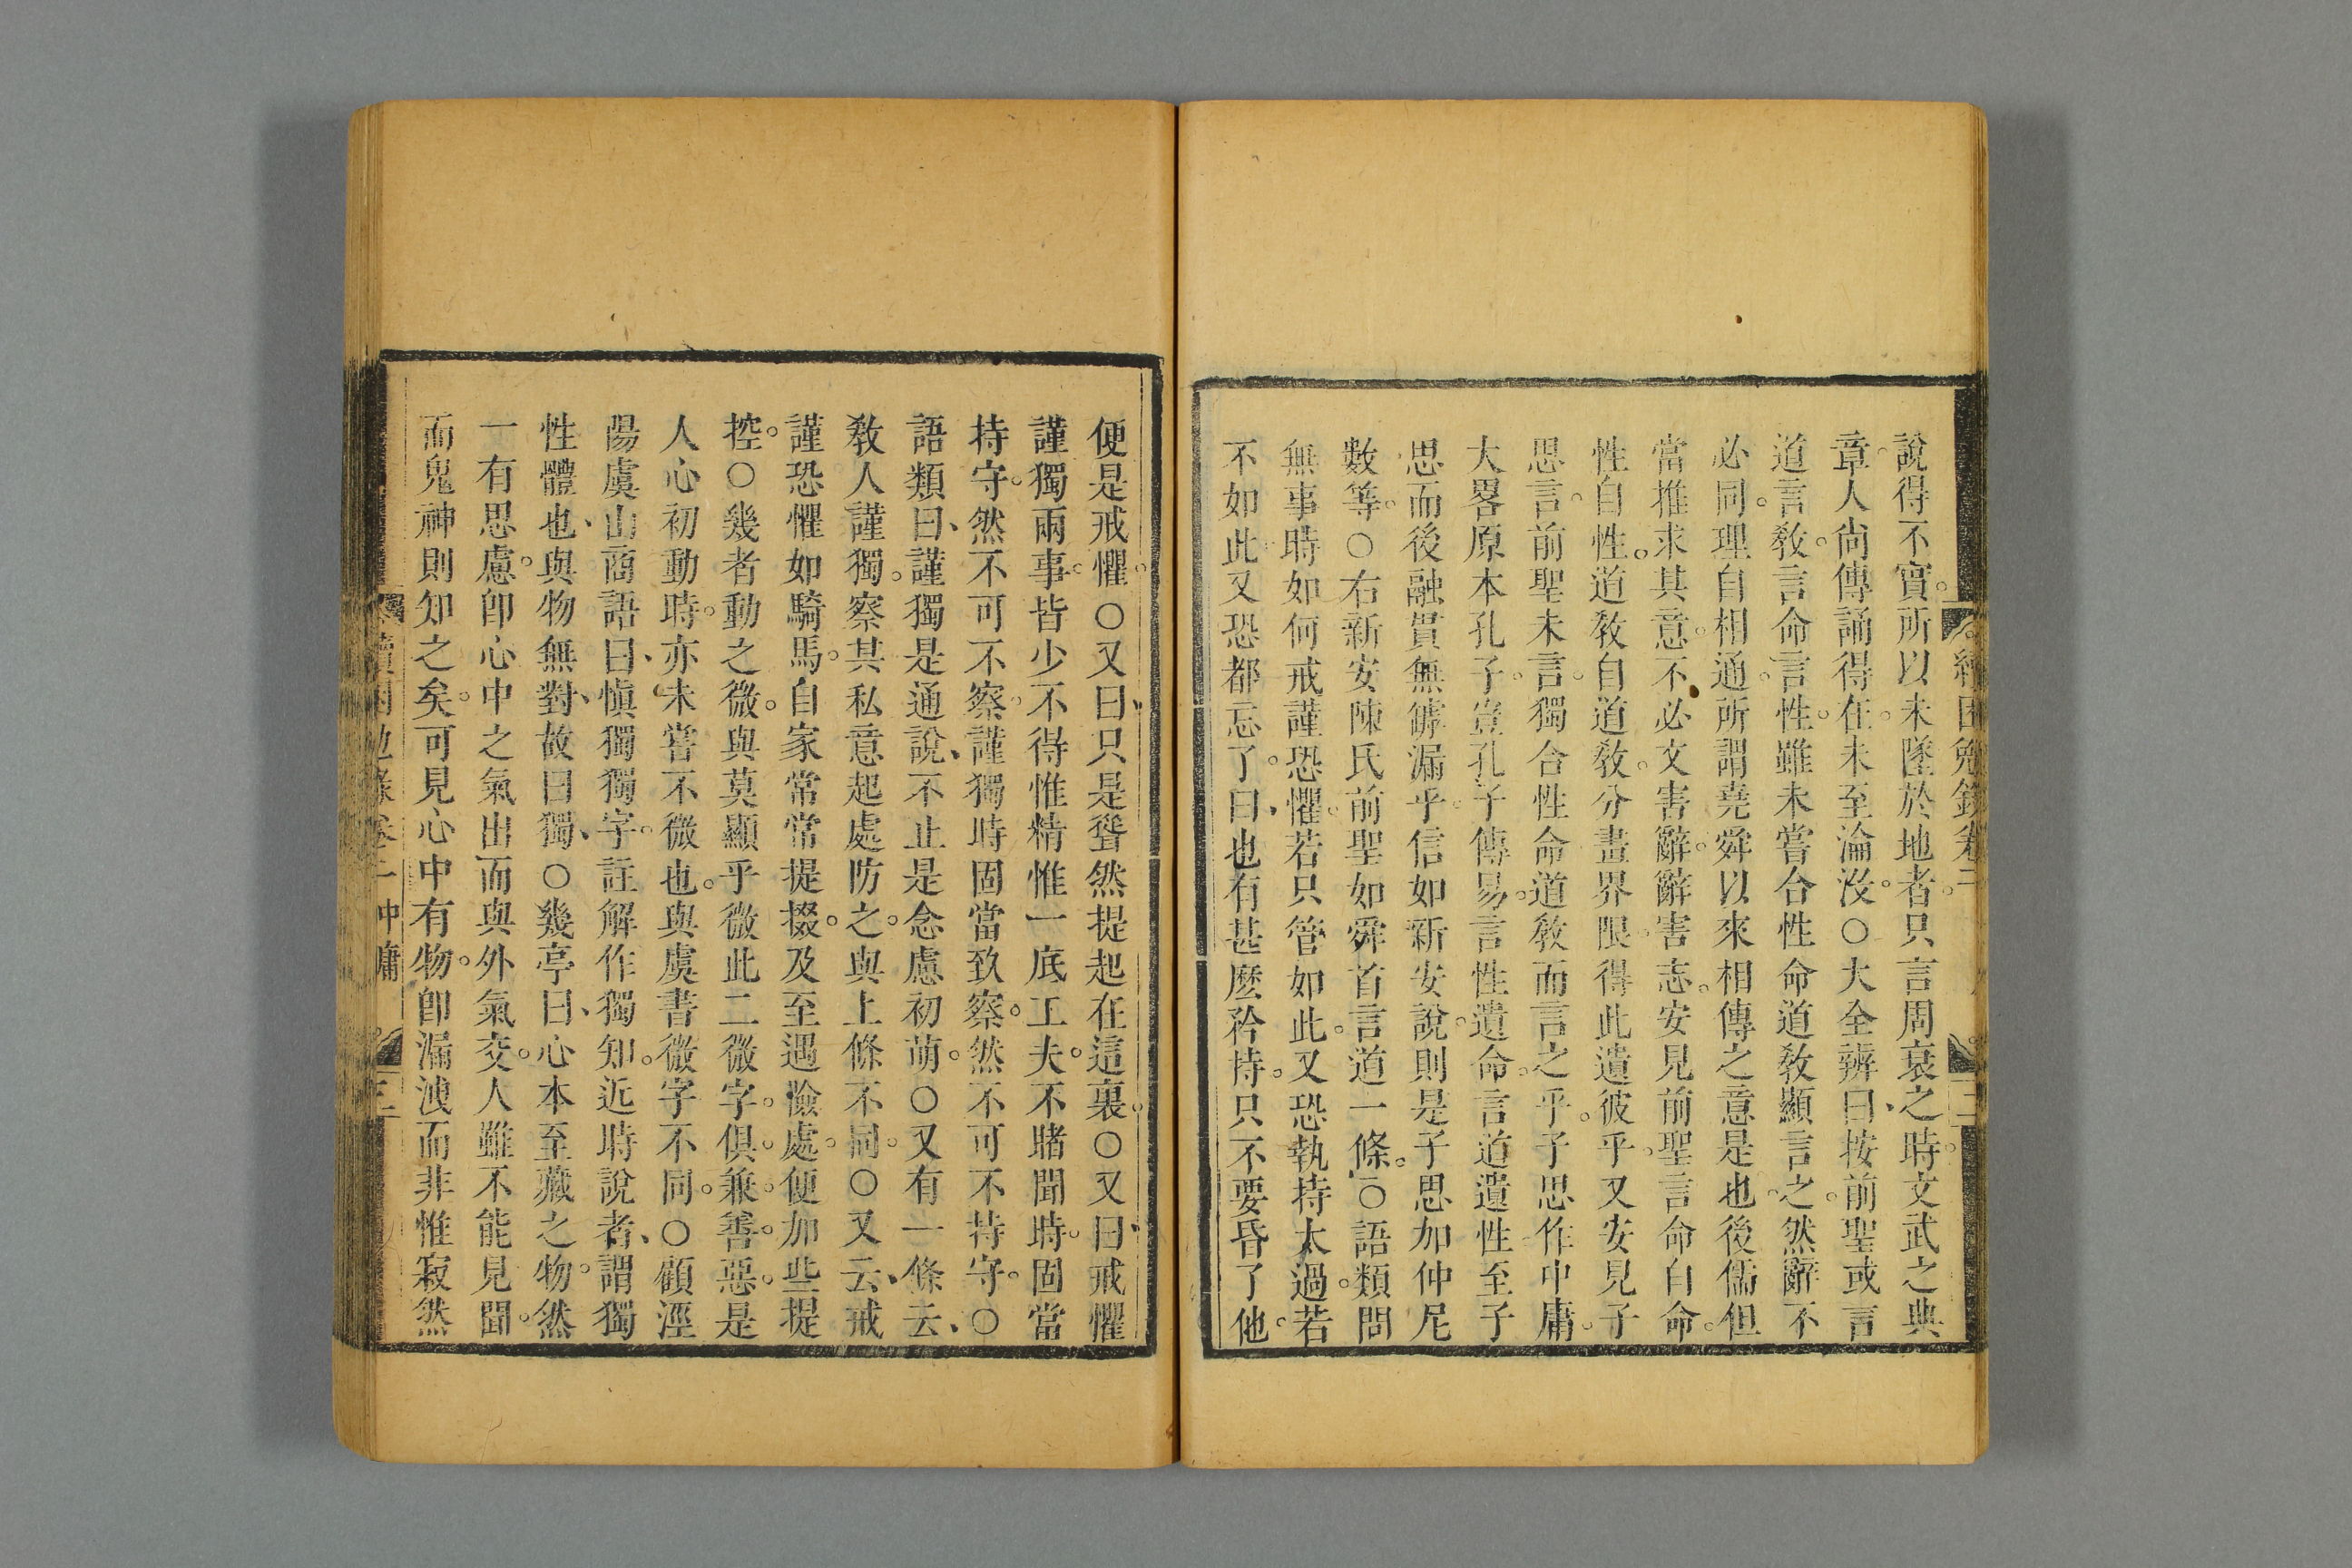 說得不實。所以未墜於地者。只言周衰之時。文武之典
章。人尚傳誦得在。未至淪沒。○大全辨曰、按前聖或言
道言敎。言命言性。雖未嘗合性命道敎顯言之。然辭不
必同。理自相通。所謂堯舜以來相傳之意是也。後儒但
當推求其意。不必文害辭。辭害志。安見前聖言命自命。
性自性。道敎自道敎。分畫界限。得此遺彼乎。又安見子
思言。前聖未言。獨合性命道敎而言之乎。子思作中庸。
大畧原本孔子。豈孔子傳易。言性遺命。言道遺性。至子
思而後融貫無罅漏乎。信如新安說。則是子思加仲尼
數等。○右新安陳氏前聖如舜首言道一條。○語類問
無事時如何戒謹恐懼。若只管如此。又恐執持太過。若
不如此又恐都忘了。曰、也有甚麽矜持。只不要昏了他。
便是戒懼。○又曰、只是聳然提起在這裏。○又曰、戒懼
謹獨兩事。皆少不得惟精惟一底工夫。不睹聞時。固當
持守。然不可不察。謹獨時固當致察。然不可不持守。○
語類曰、謹獨是通說、不止是念慮初萌。○又有一條去、
敎人謹獨。察其私意起處防之。與上條不同。○又云、戒
謹恐懼如騎馬。自家常常提掇。及至遇險處。便加些提
控。○幾者動之微。與莫顯乎微此二微字。俱兼善惡。是
人心初動時。亦未嘗不微也。與虞書微字不同。○顧涇
陽虞山商語曰、愼獨獨字。註解作獨知。近時說者、謂獨
性體也、與物無對、故曰獨、○幾亭曰、心本至藏之物。然
一有思慮。卽心中之氣出而與外氣交。人雖不能見聞。
而鬼神則知之矣。可見心中有物。卽漏洩而非惟寂然